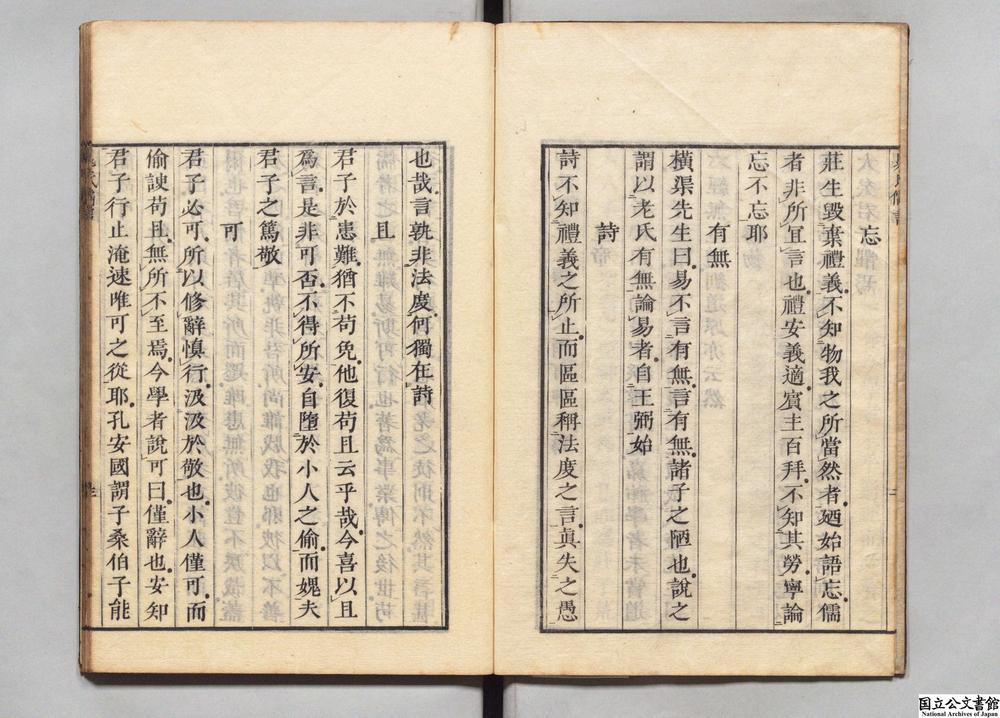 忘
莊生毀棄禮義不知物我之所當然者廼始語忘儒
者非所冝言也禮安義適賓主百拜不知其勞寧論
忘不忘耶
有無
橫渠先生曰易不言有無言有無諸子之陋也說之
謂以老氏有無論易者自王弼始
詩
詩不知禮義之所止而區區稱法度之言眞失之愚
也哉言孰非法度何獨在詩
且
君子於患難猶不苟免他復苟且云乎哉今喜以且
爲言是非可否不得所安自墮於小人之偷而媿夫
君子之篤敬
可
君子必可所以修辭愼行汲汲於敬也小人僅可而
偷諛苟且無所不至焉今學者說可曰僅辭也安知
君子行止淹速唯可之從耶孔安國謂子桑伯子能
国立公文書館
National Archives of Japan